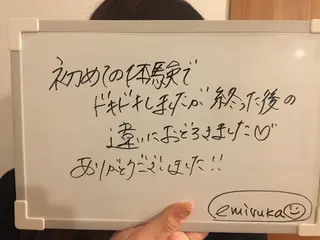 初めての体験で
ドキドキしましたが 終った後の
違いにおどろきました♡
ありがとうございました!!
emiruka☺